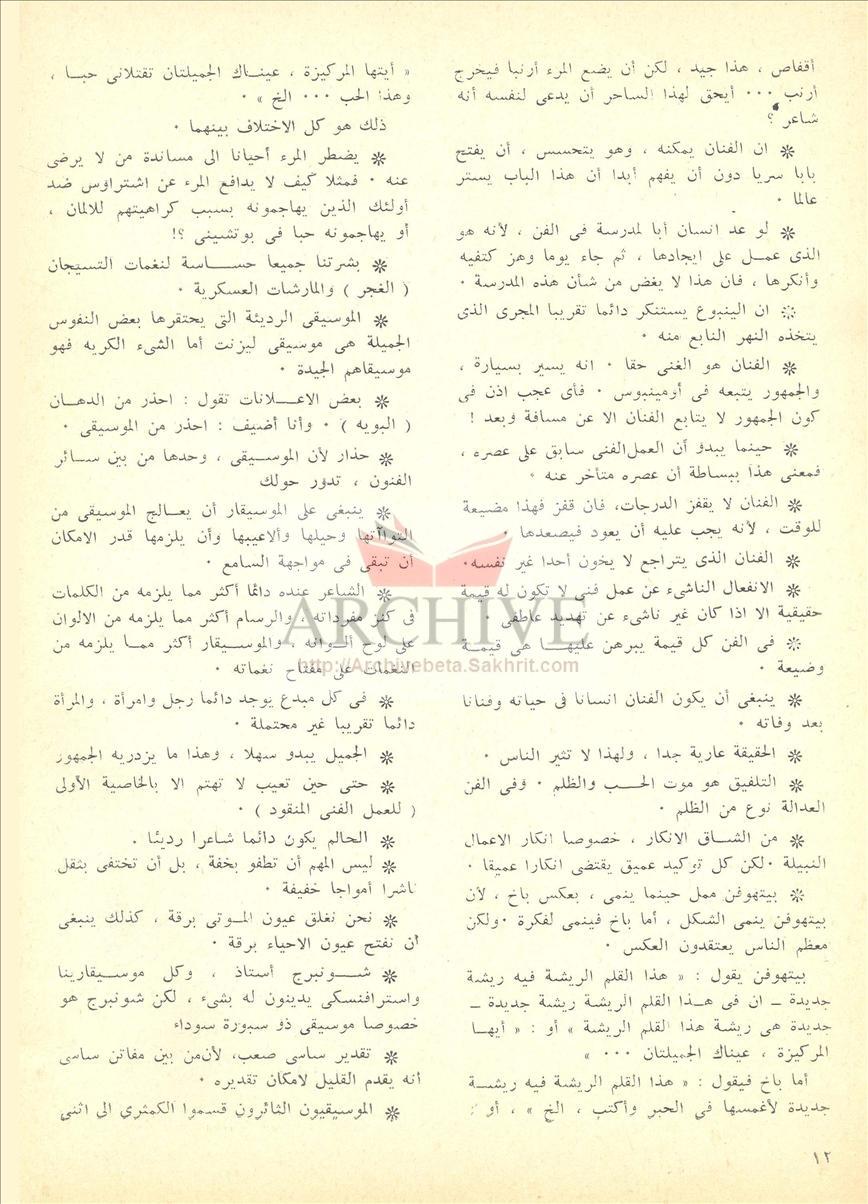 أقفاص ، هذا جيد ، لكن أن يضع المرء أرنبا فيخرج
أرنب ••• أيحق لهذا الساحر أن يدعى لنفسه أنه
شاعر ؟
❋ ان الفنان يمكنه ، وهو يتحسس ، أن يفتح
بابا سريا دون أن يفهم أبدا أن هذا الباب يستر
عالما •
❋ لو عد انسان أبا لمدرسة فى الفن ، لأنه هو
الذى عمـل على ايجادها ، ثم جاء يوما وهز كتفيه
وأنكرها ، فان هذا لا يغض من شأن هذه المدرسة •
❋ ان الينبوع يستنكر دائما تقريبا المجرى الذى
يتخذه النهر النابع منه •
❋ الفنان هو الغنى حقا • انه يسير بسيارة ،
والجمهور يتبعه فى أومينيبوس • فأى عجب اذن فى
كون الجمهور لا يتابع الفنان الا عن مسافة وبعد !
❋ حينما يبدو أن العمل الفنى سابق على عصره ،
فمعنى هذا ببساطة أن عصره متأخر عنه •
❋ الفنان لا يقفز الدرجات، فان قفز فهذا مضيعة
للوقت ، لأنه يجب عليه أن يعود فيصعدها •
❋ الفنان الذى يتراجع لا يخون أحدا غير نفسه•
❋ الانفعال الناشىء عن عمل فنى لا تكون له قيمة
حقيقية الا اذا كان غير ناشىء عن تهديد عاطفى •
❋ فى الفن كل قيمة يبرهن عليهـا هى قيمـة
وضيعة •
❋ ينبغى أن يكون الفنان انسانا فى حياته وفنانا
بعد وفاته •
❋ الحقيقة عارية جدا ، ولهذا لا تثير الناس •
❋ التلفيق هو موت الحـب والظلم • وفى الفن
العدالة نوع من الظلم •
❋ من الشـاق الانكار ، خصوصا انكار الاعمال
النبيلة •لكن كل توكيد عميق يقتضى انكارا عميقا •
❋ بيتهوفن ممل حينما ينمى ، بعكس باخ ، لأن
بيتهوفن ينمى الشكل ، أما باخ فينمى لفكرة •ولكن
معظم الناس يعتقدون العكس •
بيتهوفن يقول : « هذا القلم الريشة فيه ريشة
جديدة ــ ان فى هـذا القلم الريشة ريشة جديدة ــ
جديدة هى ريشة هذا القلم الريشة » أو : « أيهـا
المركيزة ، عيناك الجميلتان ••• »
أما باخ فيقول : « هذا القلم الريشة فيه ريشـة
جديدة لأغمسها في الحبر وأكتب ، الخ » ، أو :
« أيتها المركيزة ، عينـاك الجميلتان تقتلانى حبـا ،
وهذا الحب ••• الخ » •
ذلك هو كل الاختلاف بينهما •
❋ يضطر المرء أحيانا الى مساندة من لا يرضى
عنه • فمثلا كيف لا يدافع المرء عن اشتراوس ضد
أولئك الذين يهاجمونه بسبب كراهيتهم للالمان ،
أو يهاجمونه حبا فى بوتشينى ؟!
❋ بشرتنا جميعا حسـاسة لنغمات التسيجان
( الغجر ) والمارشات العسكرية •
❋ الموسيقى الرديئة التى يحتقرها بعض النفوس
الجميلة هى موسيقى ليزنت أما الشىء الكريه فهو
موسيقاهم الجيدة •
❋ بعض الاعـلانات تقول : احذر من الدهـان
( البويه ) • وأنا أضيف : احذر من الموسيقى •
❋ حذار لأن الموسـيقى ، وحدها من بين سـائر
الفنون ، تدور حولك
❋ ينبغى على الموسيقار أن يعـالج الموسيقى من
التواآتها وحيلها وألاعيبها وأن يلزمها قدر الامكان
أن تبقى فى مواجهة السامع •
❋ الشاعر عنده دائما أكثر مما يلزمه من الكلمات
فى كنز مفرداته ، والرسام أكثر مما يلزمه من الالوان
على لوح ألـوانه ، والموسيقار أكثر ممـا يلزمه من
النغمات على مفتاح نغماته •
❋ فى كل مبدع يوجد دائما رجل وامرأة ، والمرأة
دائما تقريبا غير محتملة •
❋ الجميل يبدو سهلا ، وهذا ما يزدريه الجمهور
❋ حتى حين تعيب لا تهتم الا بالخاصية الأولى
( للعمل الفنى المنقود ) •
❋ الحالم يكون دائما شاعرا رديئا .
❋ ليس المهم أن تطفو بخفة ، بل أن تختفى بثقل
ناشرا أمواجا خفيفة •
❋ نحن نغلق عيون المـوتى برقة ، كذلك ينبغى
أن نفتح عيون الاحياء برقة •
❋ شـونبرج أستاذ ، وكل موسـيقارينا
واسترافنسكى يدينون له بشىء ، لكن شونبرج هو
خصوصا موسيقى ذو سبورة سوداء
❋ تقدير ساسى صعب، لأن من بين مفاتن ساسى
أنه يقدم القليل لامكان تقديره •
❋ الموسيقيون الثائرون قسموا الكمثري الى اثنى
١٢
ARCHIVE
http://Archivebeta.Sakhrit.com